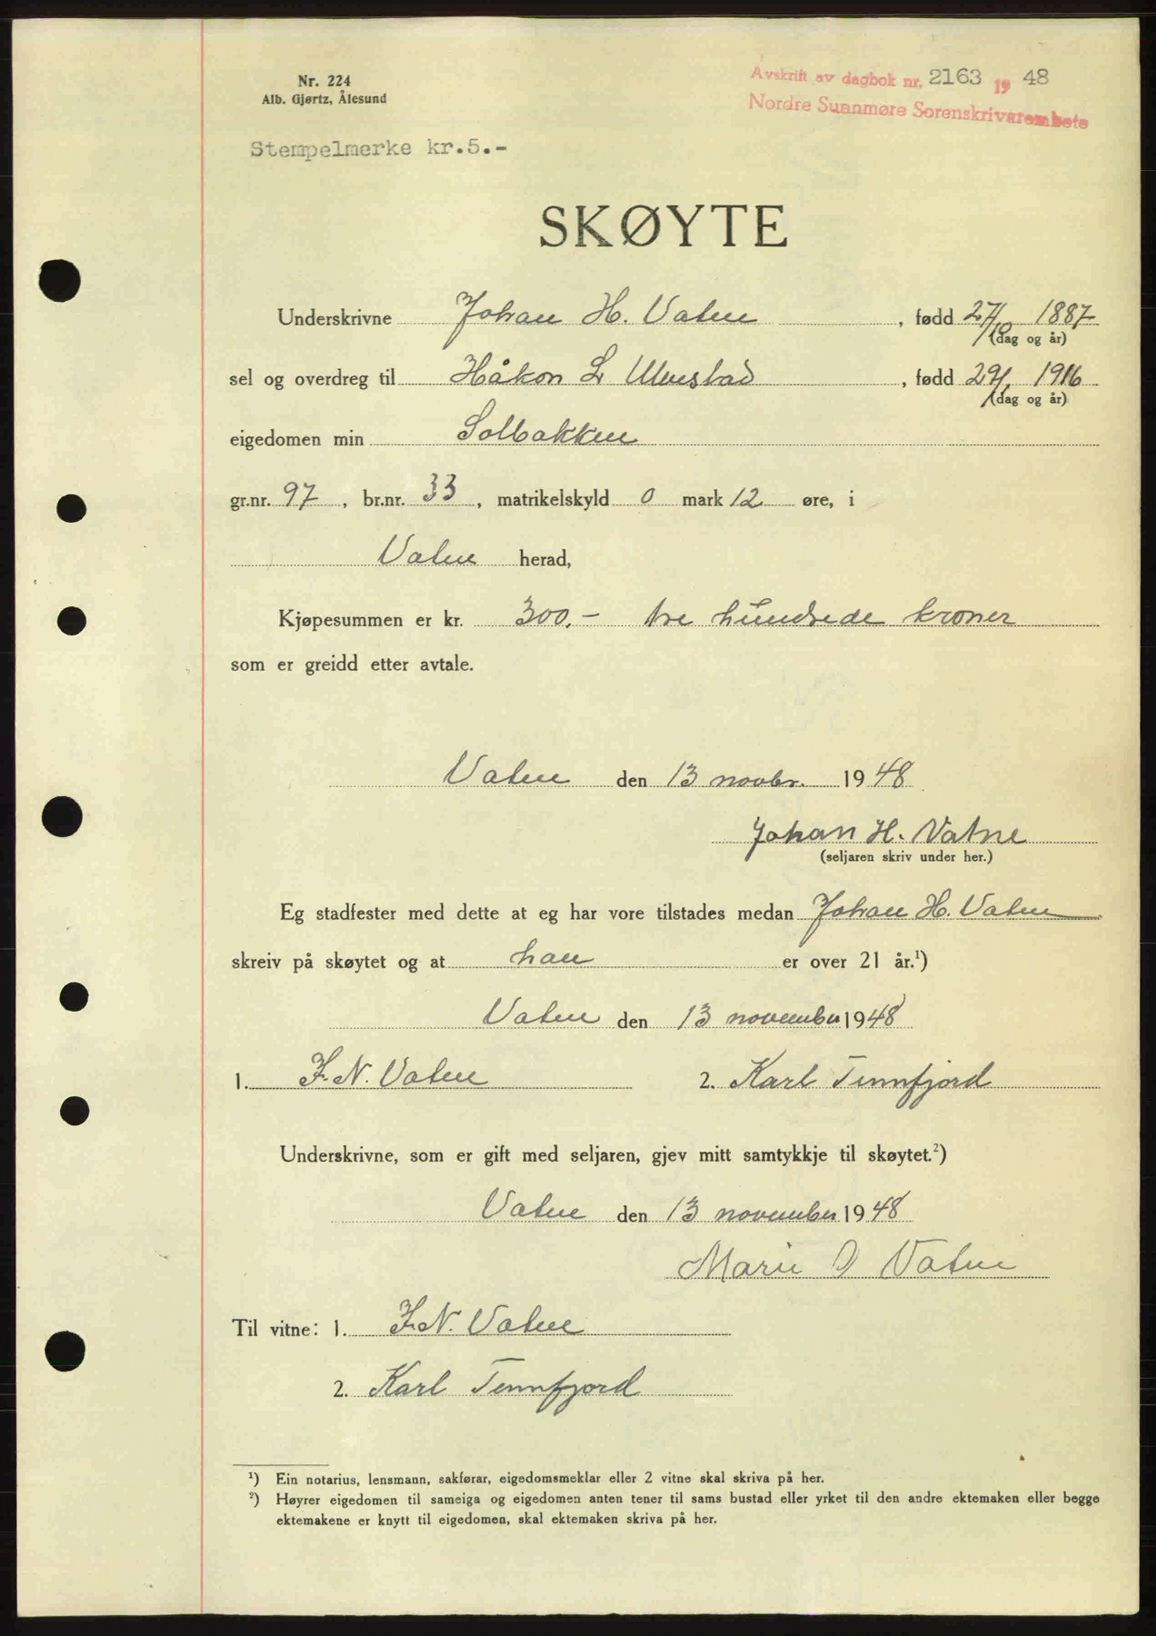 Nr. 224
Alb. Gjørtz, Ålesund
Avskrift av dagbok nr. 2163 19 48
Nordre Sunnmøre Sorenskrivarembete
Stempelmerke kr.5.-
SKØYTE
Underskrivne Johan H. Vatne, fødd 27/10 1887
(dag og år)
sel og overdreg til Håkon L Ulvestad, fødd 29/1 1916
(dag og år)
eigedomen min Solbakken
gr.nr. 97, br.nr. 33, matrikelskyld 0 mark 12 øre, i
Vatne herad,
Kjøpesummen er kr. 300.- tre hundrede kroner
som er greidd etter avtale.
Vatne den 13 novbr. 1948
Johan H. Vatne
(seljaren skriv under her.)
Eg stadfester med dette at eg har vore tilstades medan Johan H. Vatne
skreiv på skøytet og at han er over 21 år.¹)
Vatne den 13 november 1948
1. J.N. Vatne 2. Karl Tennfjord
Underskrivne, som er gift med seljaren, gjev mitt samtykkje til skøytet.²)
Vatne den 13 november 1948
Marie O Vatne
Til vitne: 1. J.N. Vatne
2. Karl Tennfjord
¹) Ein notarius, lensmann, sakførar, eigedomsmeklar eller 2 vitne skal skriva på her.
²) Høyrer eigedomen til sameiga og eigedomen anten tener til sams bustad eller yrket til den andre ektemaken eller begge
ektemakene er knytt til eigedomen, skal ektemaken skriva på her.